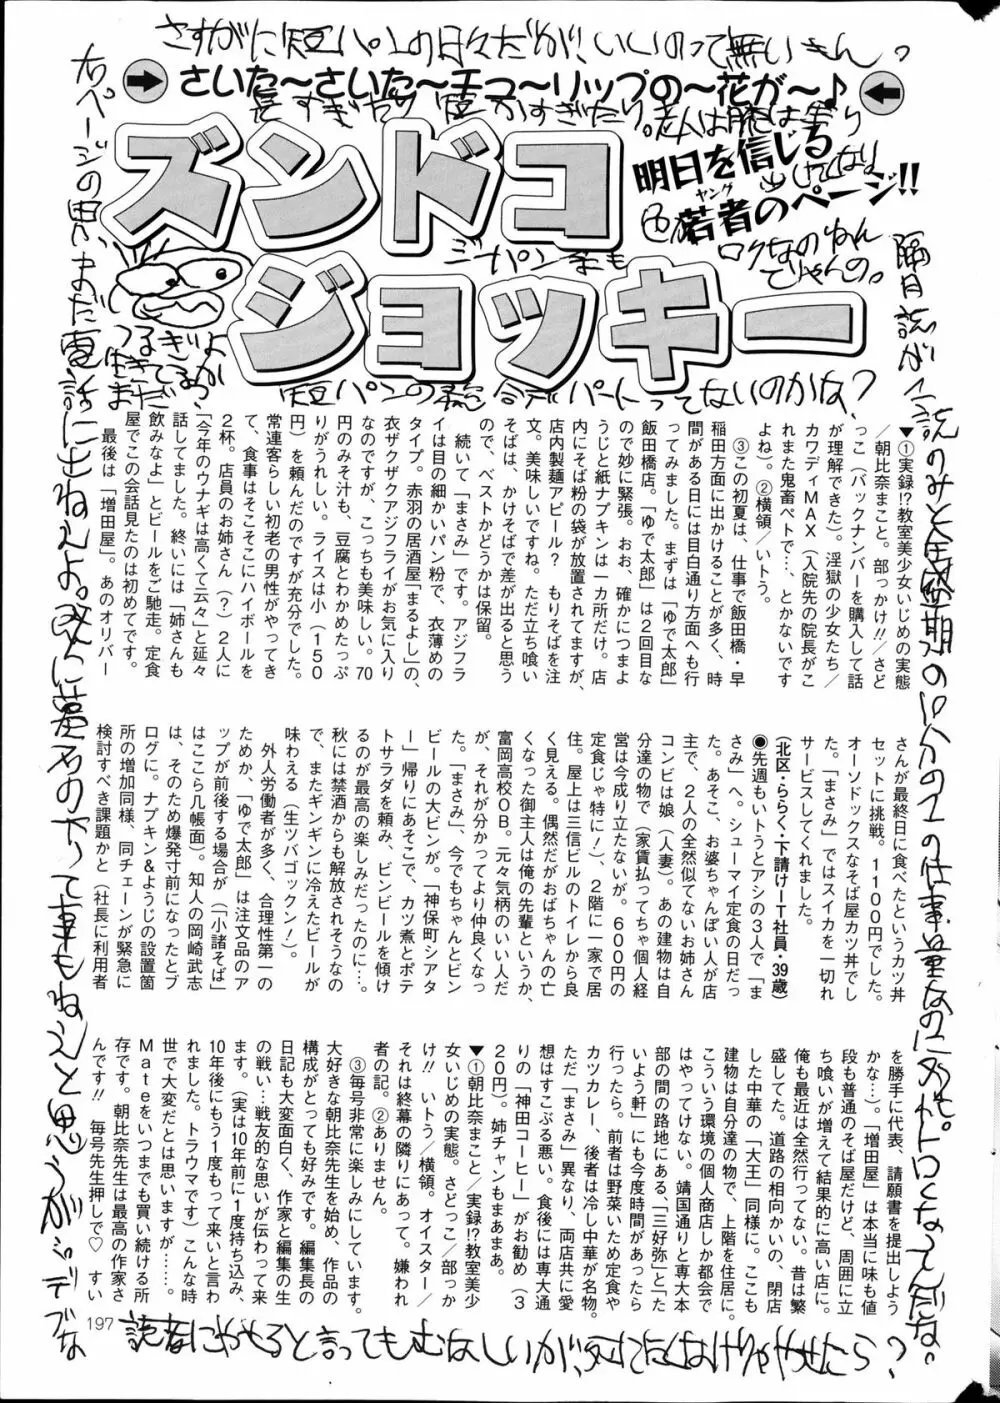 さいた〜さいた〜チュ〜リップの〜花が〜♪
明日を信じる
若者のページ!!
ヤング
ズンドコ
ジョッキー
▼①実録!?教室美少女いじめの実態
／朝比奈まこと。部っかけ!!／さど
っこ（バックナンバーを購入して話
が理解できた）。淫獄の少女たち／
カワディMAX（入院先の院長がこ
れまた鬼畜ペトで…、とかないです
よね）。②横領／いトう。
③この初夏は、仕事で飯田橋・早
稲田方面に出かけることが多く、時
間がある日には目白通り方面へも行
ってみました。まずは「ゆで太郎」
飯田橋店。「ゆで太郎」は2回目な
ので妙に緊張。おお、確かにつまよ
うじと紙ナプキンは一カ所だけ。店
内にそば粉の袋が放置されてますが、
店内製麺アピール？ もりそばを注
文。美味しいですね。ただ立ち喰い
そばは、かけそばで差が出ると思う
ので、ベストかどうかは保留。
続いて「まさみ」です。アジフラ
イは目の細かいパン粉で、衣薄めの
タイプ。赤羽の居酒屋「まるよし」の、
衣ザクザクアジフライがお気に入り
なのですが、こっちも美味しい。70
円のみそ汁も、豆腐とわかめたっぷ
りがうれしい。ライスは小（150
円）を頼んだのですが充分でした。
常連客らしい初老の男性がやってき
て、食事はそこそこにハイボールを
2杯。店員のお姉さん（？）2人に
「今年のウナギは高くて云々」と延々
話してました。終いには「姉さんも
飲みなよ」とビールをご馳走。定食
屋でこの会話見たのは初めてです。
最後は「増田屋」。あのオリバー
さんが最終日に食べたというカツ丼
セットに挑戦。1100円でした。
オーソドックスなそば屋カツ丼でし
た。「まさみ」ではスイカを一切れ
サービスしてくれました。
（北区・ららく・下請けIT社員・39歳）
●先週もいトうとアシの3人で「ま
さみ」へ。シューマイ定食の日だっ
た。あそこ、お婆ちゃんぽい人が店
主で、2人の全然似てないお姉さん
コンビは娘（人妻）。あの建物は自
分達の物で（家賃払ってちゃ個人経
営は今成り立たないが。600円の
定食じゃ特に！）、2階に一家で居
住。屋上は三信ビルのトイレから良
く見える。偶然だがおばちゃんの亡
くなった御主人は俺の先輩というか、
富岡高校OB。元々気柄のいい人だ
が、それが分かってより仲良くなっ
た。「まさみ」、今でもちゃんとビン
ビールの大ビンが。「神保町シアタ
ー」帰りにあそこで、カツ煮とポテ
トサラダを頼み、ビンビールを傾け
るのが最高の楽しみだったのに…。
秋には禁酒からも解放されそうなの
で、またギンギンに冷えたビールが
味わえる（生ツバゴックン！）。
外人労働者が多く、合理性第一の
ためか、「ゆで太郎」は注文品のア
ップが前後する場合が（「小諸そば」
はここら几帳面）。知人の岡崎武志
は、そのため爆発寸前になったとブ
ログに。ナプキン&ようじの設置箇
所の増加同様、同チェーンが緊急に
検討すべき課題かと（社長に利用者
を勝手に代表、請願書を提出しよう
かな…）。「増田屋」は本当に味も値
段も普通のそば屋だけど、周囲に立
ち喰いが増えて結果的に高い店に。
俺も最近は全然行ってない。昔は繁
盛してた。道路の相向かいの、閉店
した中華の「大王」同様に。ここも
建物は自分達の物で、上階を住居に。
こういう環境の個人商店しか都会で
はやってけない。靖国通りと専大本
部の間の路地にある、「三好弥」と「た
いよう軒」にも今度時間があったら
行ったら。前者は野菜いため定食や
カツカレー、後者は冷し中華が名物。
ただ「まさみ」異なり、両店共に愛
想はすこぶる悪い。食後には専大通
りの「神田コーヒー」がお勧め（3
20円）。姉チャンもまあまあ。
▼①朝比奈まこと／実録!?教室美少
女いじめの実態。さどっこ／部っか
け!! いトう／横領。オイスター／
それは終幕の隣りにあって。嫌われ
者の記。②ありません。
③毎号非常に楽しみにしています。
大好きな朝比奈先生を始め、作品の
構成がとっても好みです。編集長の
日記も大変面白く、作家と編集の生
の戦い…戦友的な思いが伝わって来
ます。（実は10年前に1度持ち込み、
10年後にもう1度もって来いと言わ
れました。トラウマです）こんな時
世で大変だとは思いますが……。
Mateをいつまでも買い続ける所
存です。朝比奈先生は最高の作家さ
んです!! 毎号先生押しで♡ すい
197
さすがに短パンの日々だが、いいのって無いもん？
ジーパンまも
短パンの
デパートってないのかな？
読者にやせると言ってもむなしいが、